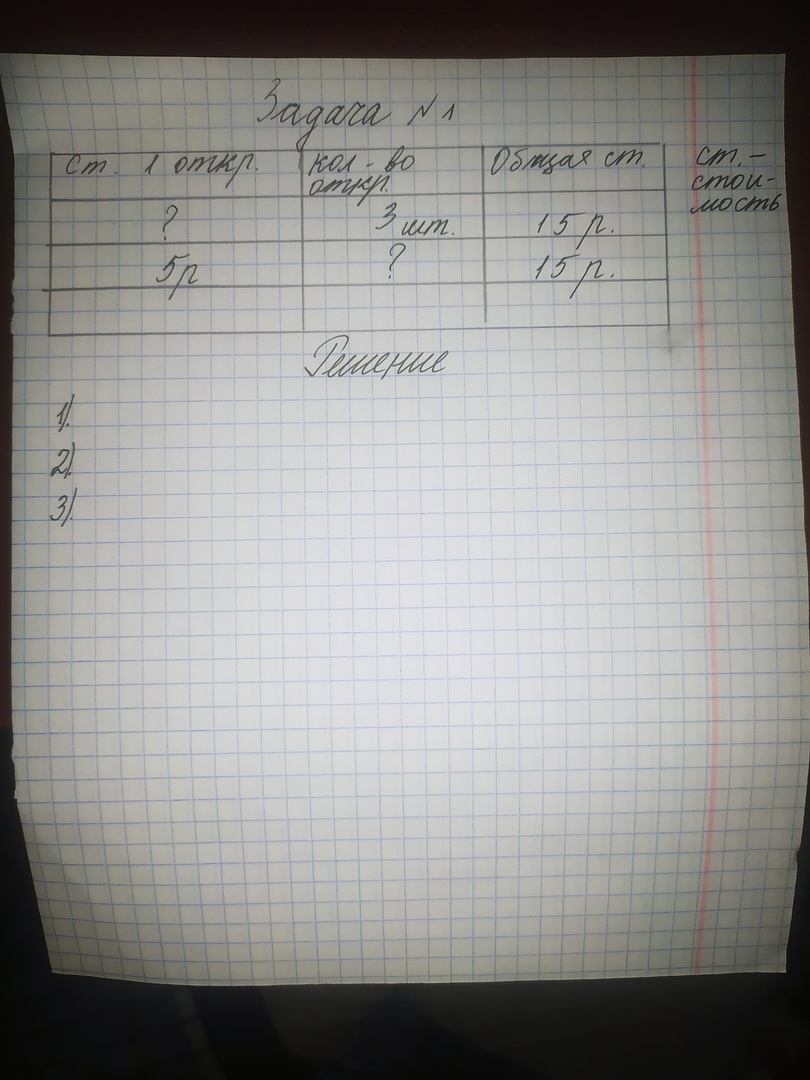 Задача № 1
ст. 1 откр. кол-во откр. Общая ст.
? 3 шт. 15 р.
5р ? 15 р.
ст.-
стои-
мость
Решение
1).
2).
3).